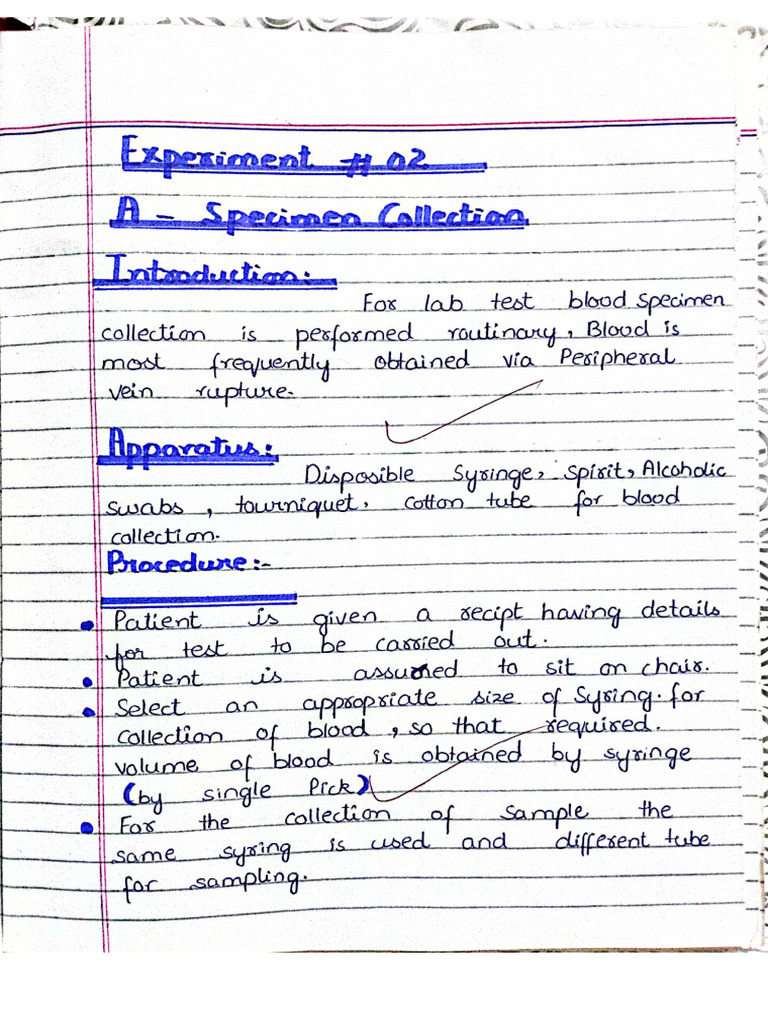 Experiment # 02
A - Specimen Collection
Introduction:
For lab test blood specimen
collection is performed routinary, Blood is
most frequently obtained via Peripheral
vein rupture.
Apparatus:
Disposible Syringe, spirit, Alcoholic
swabs, tourniquet, cotton tube for blood
collection.
Procedure:-
• Patient is given a recipt having details
for test to be carried out.
• Patient is assumed to sit on chair.
• Select an appropriate size of Syring. for
collection of blood, so that required.
volume of blood is obtained by syringe
(by single Pick)
• For the collection of sample the
same syring is used and different tube
for sampling.